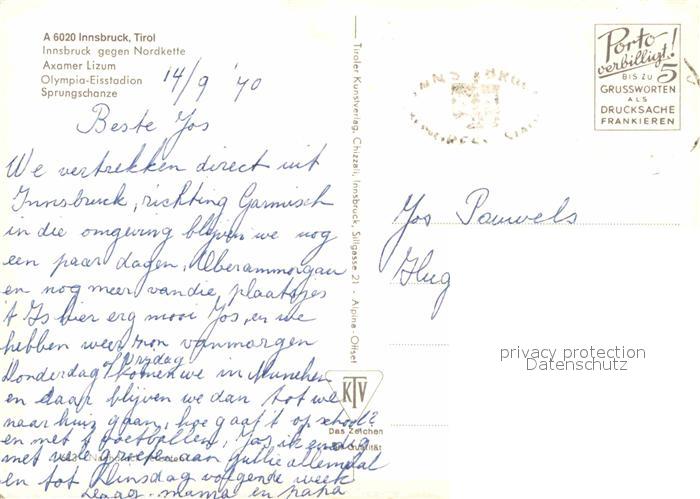 A 6020 Innsbruck, Tirol
Innsbruck gegen Nordkette
Axamer Lizum
Olympia-Eisstadion
Sprungschanze
14/9 '70
Beste Jos
We vertrekken direct uit
Innsbruck, richting Garmisch
in die omgeving blijven we nog
een paar dagen, Oberammergau
en nog meer van die plaatsjes
't Is hier erg mooi Jos, en we
hebben weer zon vanmorgen
Donderdag of Vrijdag komen we in München
en daar blijven we dan tot we
naar huis gaan, hoe gaat 't op school?
en met 't voetballen, Jos ik eindig
met vele groeten aan jullie allemaal
en tot Dinsdag volgende week
mama en papa
Tiroler Kunstverlag, Chizzali, Innsbruck, Sillgasse 21 - Alpina-Offset
KTV
Das Zeichen
der Qualität
Porto
verbilligt!
BIS ZU 5
GRUSSWORTEN
ALS
DRUCKSACHE
FRANKIEREN
Jos Pauwels
privacy protection
Datenschutz